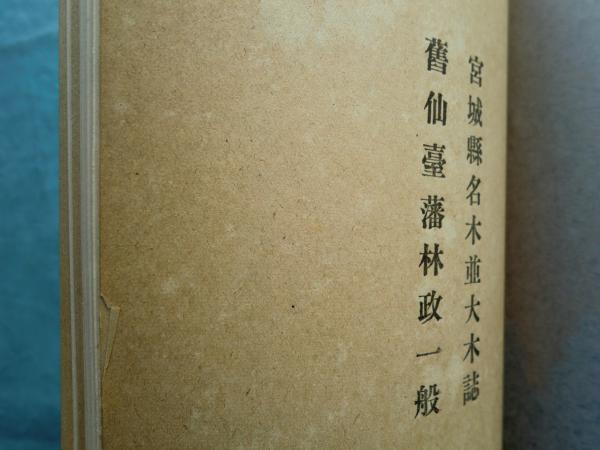 宮城縣名木並大木誌
舊仙臺藩林政一般